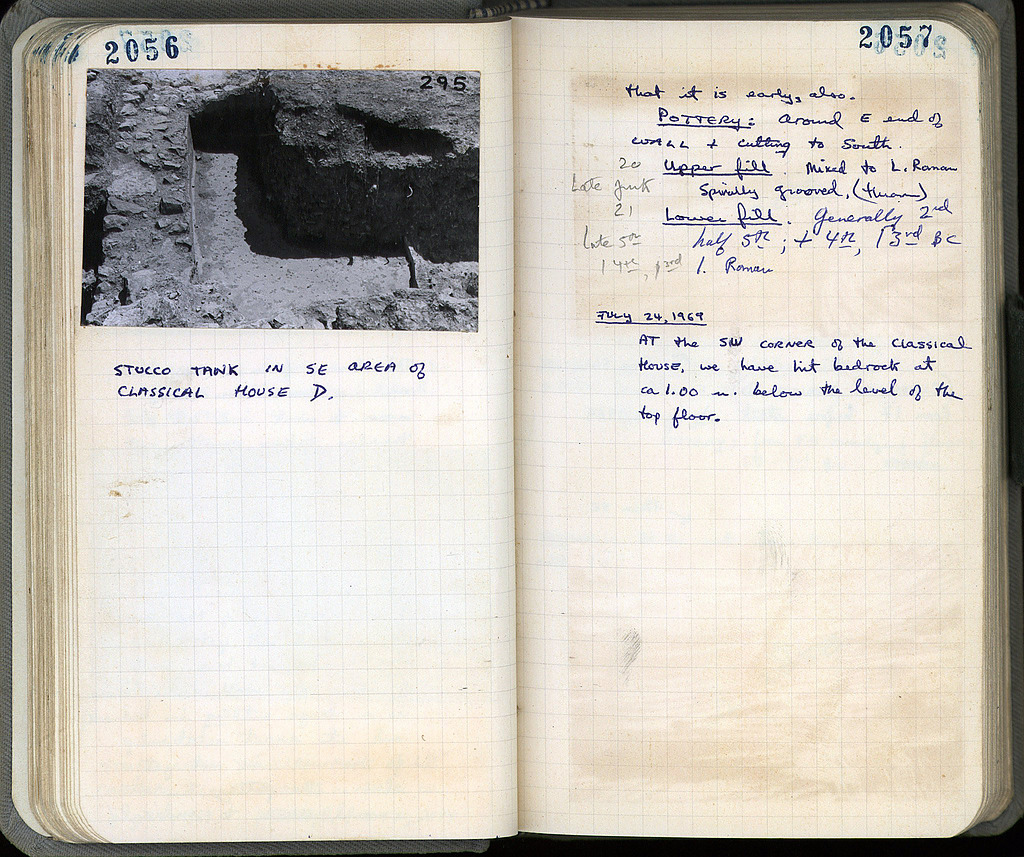 2056
295
STUCCO TANK IN SE AREA OF
CLASSICAL HOUSE D.
2057
that it is early, also.
POTTERY: Around E end of
WALL + cutting to South.
20 Upper fill. Mixed to L. Roman
Late junk Spirally grooved,
21 Lower fill. Generally 2nd
Late 5th half 5th; + 4th, 1 3rd BC
1 4th, 1 3rd 1. Roman
July 24, 1969
AT the SW CORNER of the CLASSICAL
HOUSE, we have hit bedrock at
ca 1.00 m. below the level of the
top floor.